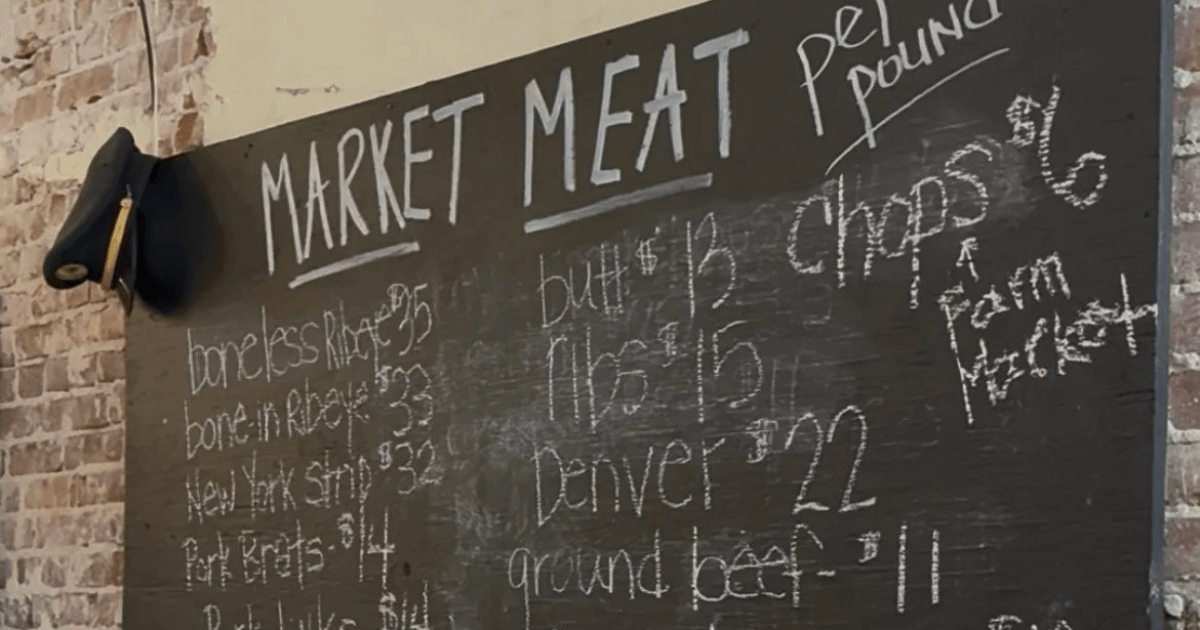 MARKET MEAT per
pound
boneless Ribeye $35
bone-in Ribeye $33
New York Strip $32
Pork Brats - $14
Pork $14
butt $13
ribs $15
Denver $22
ground beef - $11
Chops $6
Farm
Market